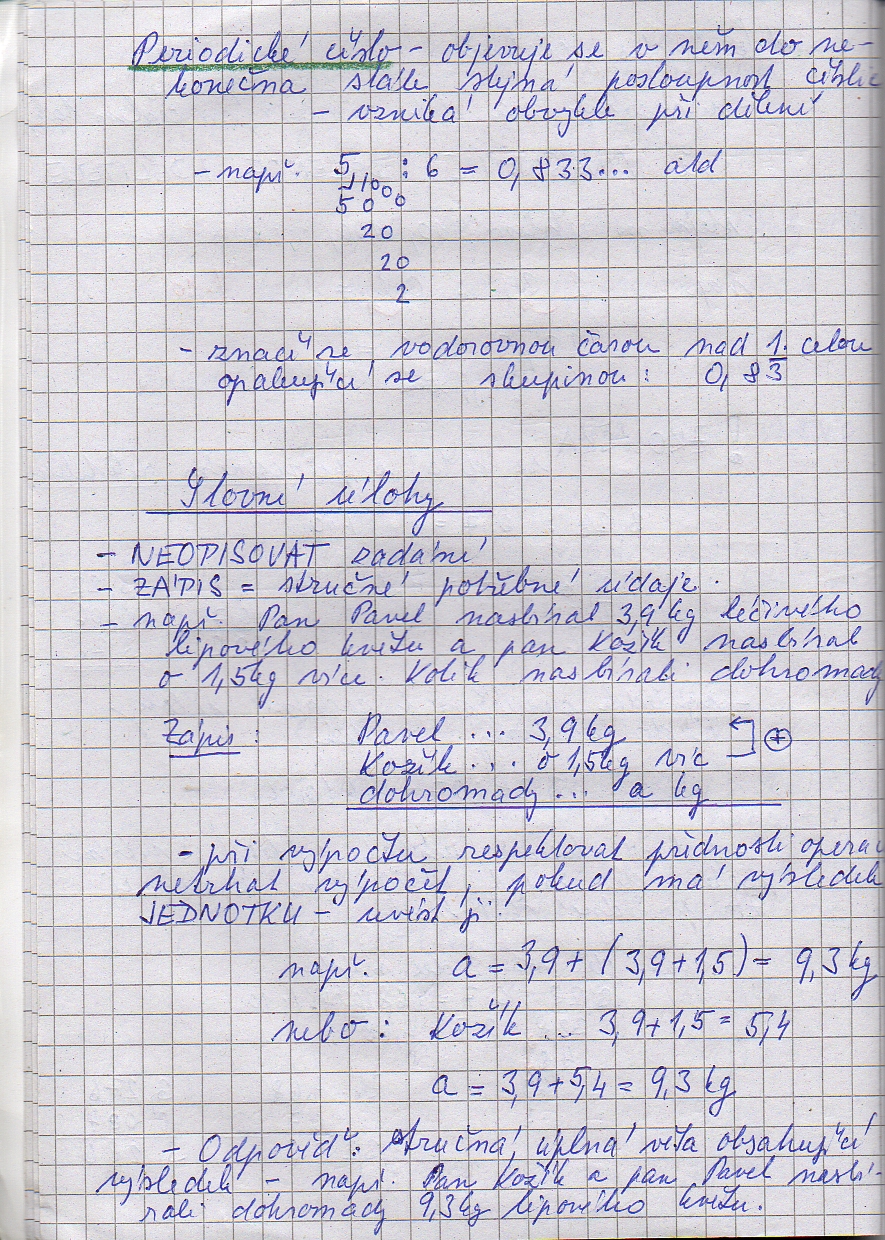 Periodické číslo - objevuje se v něm do ne-
konečna stále stejná posloupnost číslic
- vzniká obvykle při dělení
- např. 5 : 6 = 0,833... atd
50
20
20
2
- značí se vodorovnou čarou nad 1. celou
opakující se skupinou: 0,83̅
Slovní úlohy
- NEOPISOVAT zadání
- ZÁPIS = stručné potřebné údaje.
- např. Pan Pavel nasbíral 3,9 kg léčivého
lipového květu a pan Kožík nasbíral
o 1,5kg více. Kolik nasbírali dohromady
Zápis: Pavel ... 3,9 kg
Kožík ... o 1,5kg víc +
dohromady ... a kg
- při výpočtu respektovat přednosti operac
netrhat výpočet, pokud má výsledek
JEDNOTKU - uvést ji.
např. a = 3,9 + (3,9+1,5) = 9,3 kg
nebo: Kožík ... 3,9+1,5 = 5,4
a = 3,9+5,4 = 9,3 kg
- Odpověď: stručná, úplná věta obsahující
výsledek - např. Pan Kožík a pan Pavel nasbí-
rali dohromady 9,3kg lipového květu.